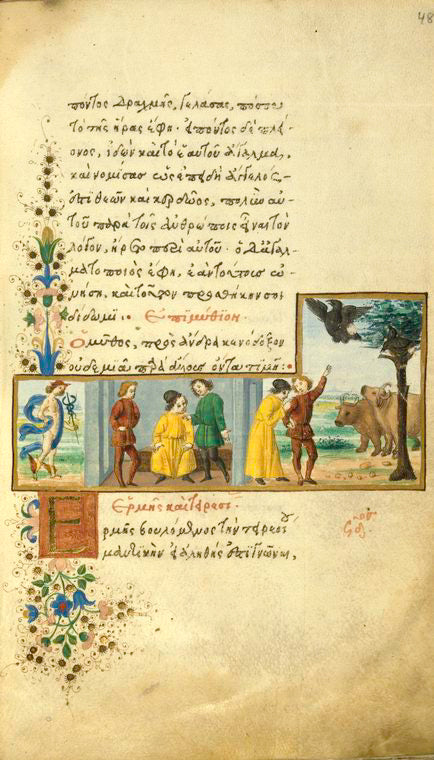 48
πόντος δραχμῆς, γελάσας, πόσου
τὸ τῆς ἥρας ἔφη. εἰπόντος δὲ πλεί-
ονος, ἰδὼν καὶ τὸ ἑαυτοῦ ἄγαλμα,
καὶ νομίσας ὡς ἐπειδὴ ἄγγελός
ἐστι θεῶν καὶ κερδῶος, πολὺν αὐ-
τοῦ παρὰ τοῖς ἀνθρώποις εἶναι τὸν
λόγον, ἤρετο περὶ αὐτοῦ. ὁ δ' ἀγαλ-
ματοποιὸς ἔφη, ἐὰν τούτους ὠ-
νήση, καὶ τοῦτον προσθήκην σοι
δίδωμι. Ἐπιμύθιον.
Ὁ μῦθος, πρὸς ἄνδρα κενόδοξον
οὐδεμιᾶ παρὰ ἄλλοις ὄντα τιμῆ:
Ἑρμῆς καὶ Τειρεσί
Ἑρμῆς βουλόμενος τὴν τειρεσίου
μαντικὴν εἰ ἀληθής ἐστι γνῶναι,